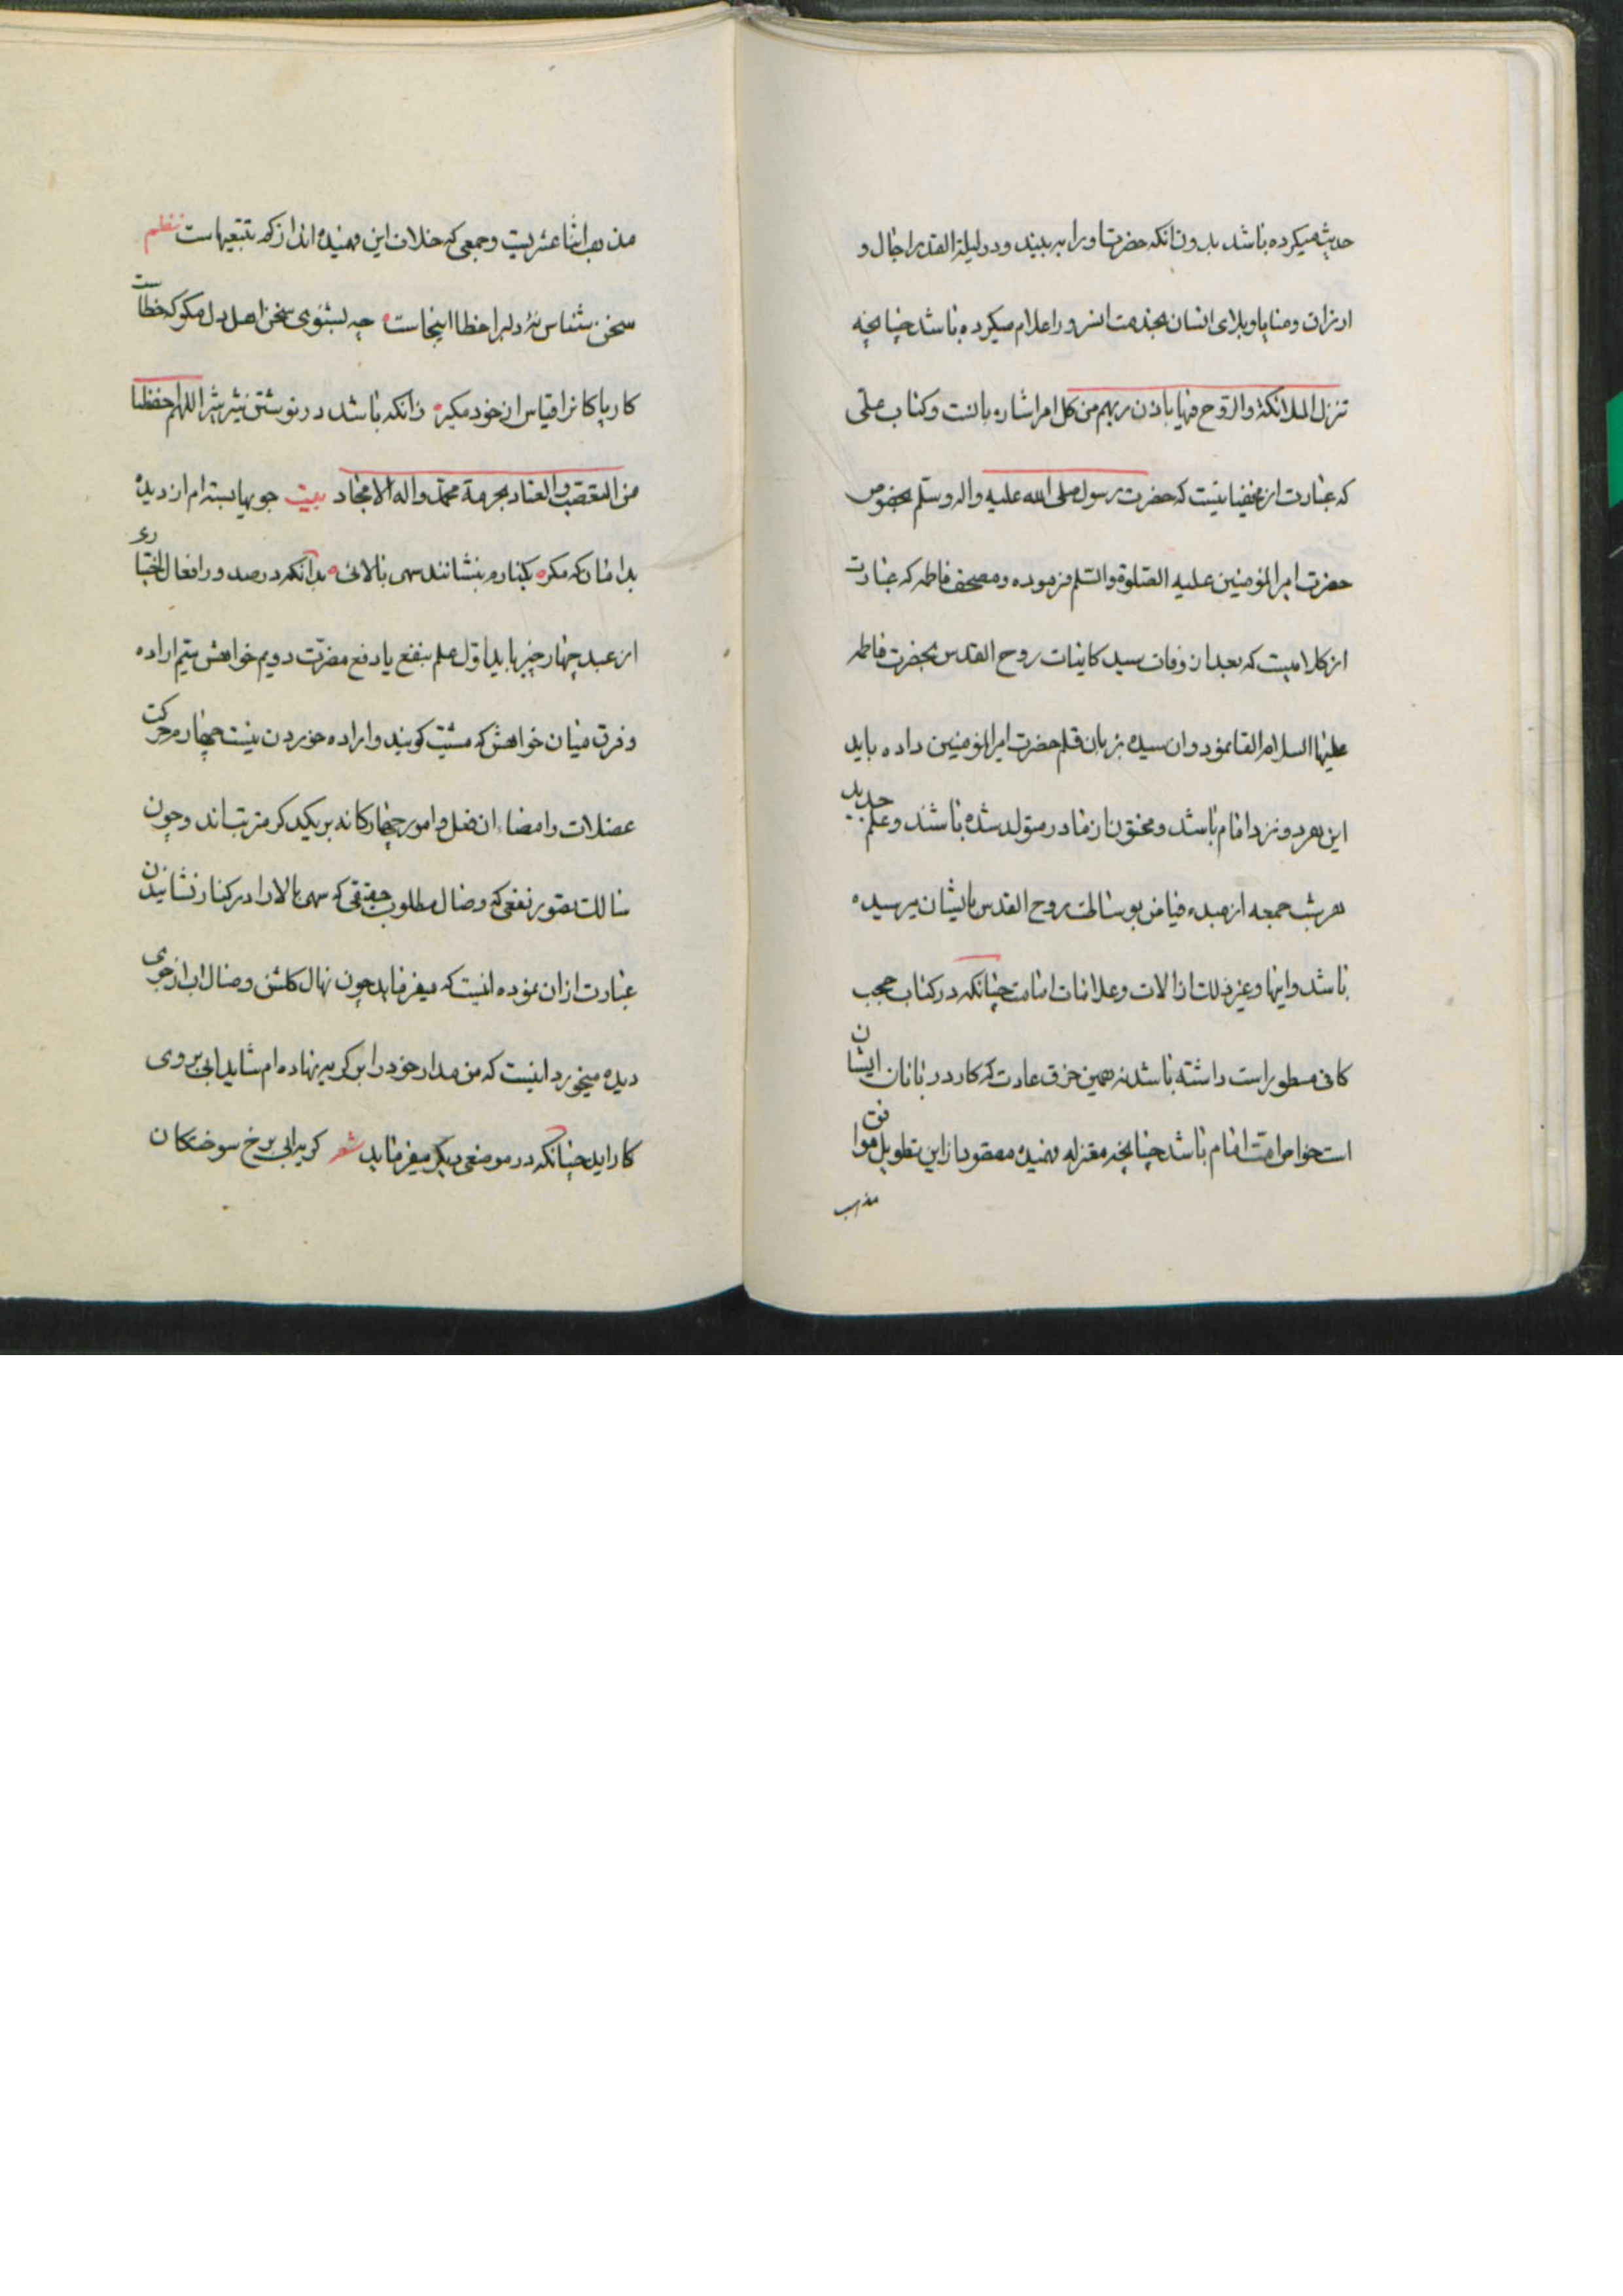 حدیث میکرده باشد بدون انکه حضرت او را به بیند و در لیلة القدر اجال و
ارزاق و منایا و بلای انسان بخدمت انسرور اعلام میکرده باشد چنانچه
تنزل الملائکة والروح فیها باذن ربهم من کل امر اشاره بانست و کتاب علی
که عبارت از صحیفه ایست که حضرت رسول صلی الله علیه واله وسلم بخصوص
حضرت امیر المؤمنین علیه الصلوة والسلم فرموده و مصحف فاطمه که عبارت
از کلامیست که بعد از وفات سید کاینات روح القدس بحضرت فاطمه
علیها السلام القا نمود و ان سیده بزبان قلم حضرت امیر المؤمنین داده باید
این هر دو نزد امام باشد و مختون از مادر متولد شده باشد و علم جدید
هر شب جمعه از مبدء فیاض بوسالت روح القدس بایشان میرسیده
باشد و اینها و غیر ذلک از الات و علامات امامت چنانکه در کتاب حجب
کافی مسطور است داشته باشد نه همین خرق عادت که کار در بانان ایشان
است خواص امت امام باشد چنانچه معتزله فهمیده مقصود از این تطویل موافق
مذهب
مذهب اثنا عشریست و جمعی که خلاف این فهمیده اند از کم تتبعیهاست نظم
سخن شناس نهٔ دلبرا خطا اینجاست چه بشنوی سخن اهل دل مکو که خطاست
کار پاکانرا قیاس از خود مکیر زانکه باشد در نوشتن شیر شیر اللهم احفظنا
من التعصب والعناد بحرمة محمد واله الامجاد بیت جویها بسته ام از دیده
بدامان که مکر بکنارم بنشانند سهی بالائی بدآنکه در صدور افعال اختیاری
از عبد چهار چیز باید اول علم بنفع یا دفع مضرت دویم خواهش سیم اراده
و فرق میان خواهش که مشیت کویند و اراده خوردن نیست چهارم حرکت
عضلات و امضاء ان فعل و امور چهارکانه بر یکدیکر مترتب اند و چون
سالک بتصور نفعی که وصال مطلوب حقیقی که سهی بالا را در کنار نشانیدن
عبارت از ان نموده انیست که میفرماید چون نهال کلشن وصال اب از جوی
دیده میخورد اینست که من مدار خود را بر کریه نهاده ام شاید ابی بروی
کار اید چنانکه در موضعی دیکر میفرماید شعر کریه ابی برخ سوختکان